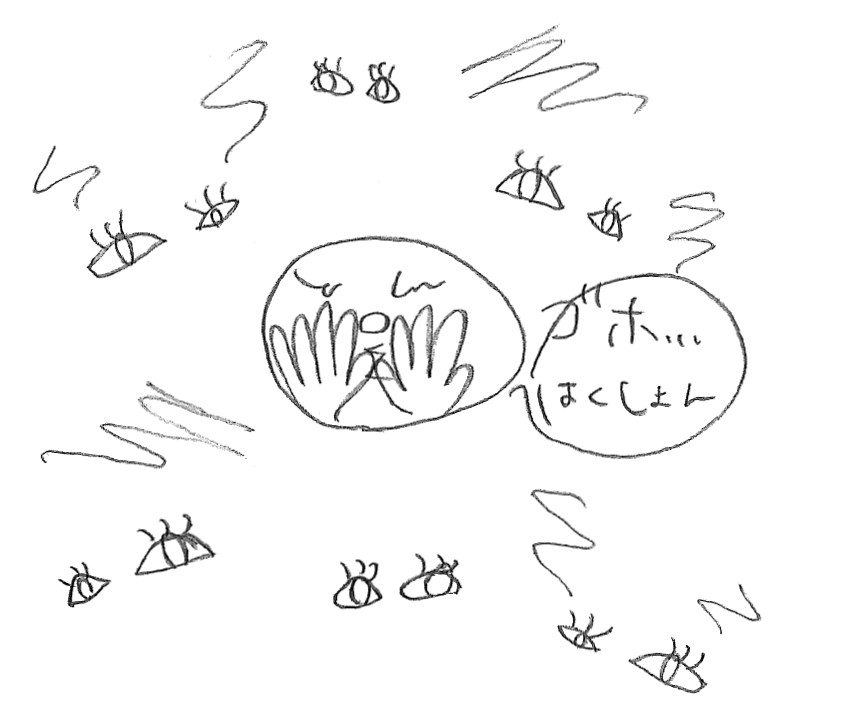 ガホ...
はくしょん